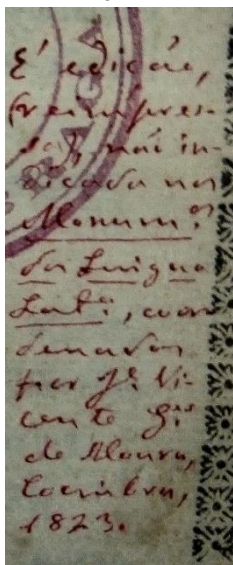 É edição,
(reimpres-
sa), não in-
dicada nos
Monum.os
da Lingua
Lat.a, coor
denados
por J.e Vi-
cente G.es
de Moura,
Coimbra,
1823.
BRAGA